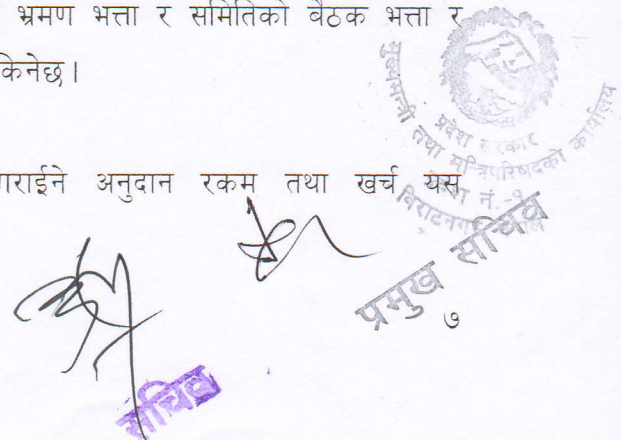 भ्रमण भत्ता र समितिको बैठक भत्ता र
किनेछ।
गराईने अनुदान रकम तथा खर्च यस
प्रदेश सरकार
मुख्यमन्त्री तथा मन्त्रिपरिषदको कार्यालय
प्रदेश नं.-१
विराटनगर
प्रमुख सचिव
७
सचिव